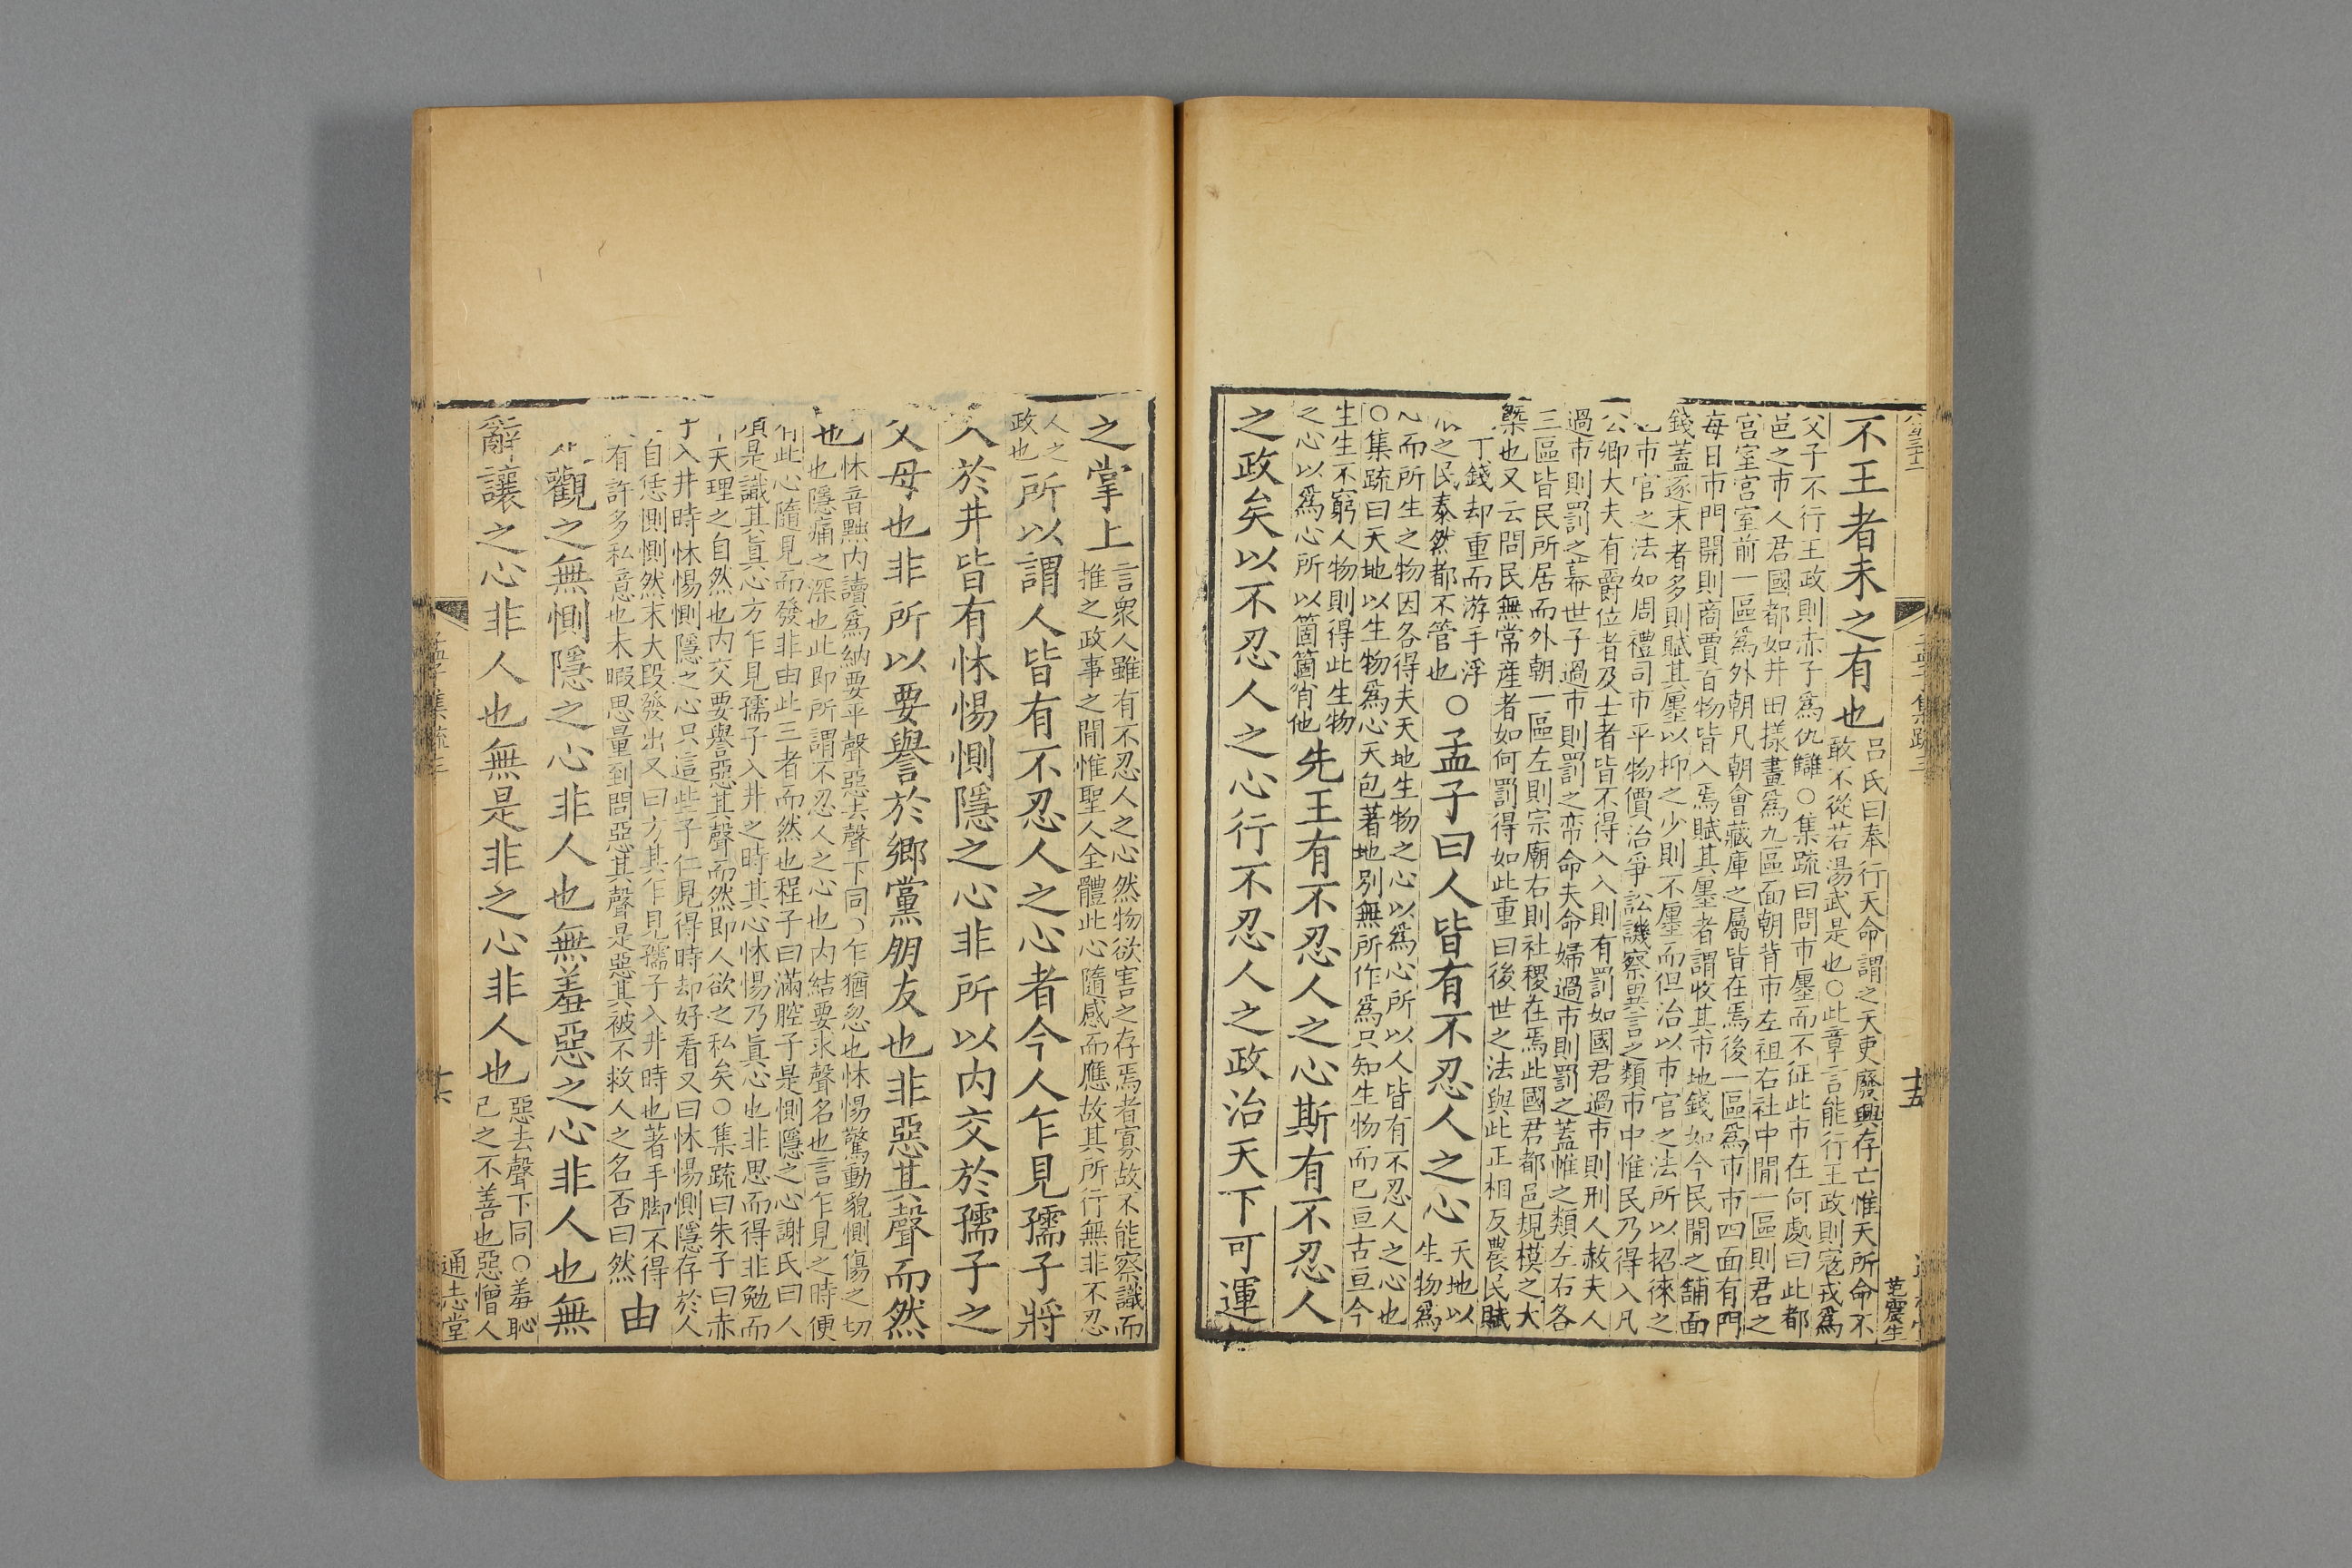 不王者未之有也 吕氏曰奉行天命謂之天吏廢興存亡惟天所命不
敢不從若湯武是也○此章言能行王政則寇戎爲
父子不行王政則赤子爲仇讎○集疏曰問市廛而不征此市在何處曰此都
邑之市人君國都如井田樣畫爲九區面朝背市左祖右社中間一區則君之
宫室宫室前一區爲外朝凡朝會藏庫之屬皆在焉後一區爲市市四面有門
每日市門開則商賈百物皆入焉賦其廛者謂收其市地錢如今民間之舖面
錢蓋逐末者多則賦其廛以抑之少則不廛而但治以市官之法所以招徠之
市官之法如周禮司市平物價治爭訟譏察異言之類市中惟民乃得入凡
公卿大夫有爵位者及士者皆不得入入則有罰如國君過市則刑人赦夫人
過市則罰之幕世子過市則罰之帟命夫命婦過市則罰之蓋帷之類左右各
三區皆民所居而外朝一區左則宗廟右則社稷在焉此國君都邑規模之大
槩也又云問民無常産者如何罰得如此重曰後世之法與此正相反農民賦
丁錢却重而游手浮
之民泰然都不管也
○孟子曰人皆有不忍人之心 天地以
生物爲
心而所生之物因各得夫天地生物之心以爲心所以人皆有不忍人之心也
○集疏曰天地以生物爲心天包著地别無所作爲只知生物而已亘古亘今
生生不窮人物則得此生物
之心以爲心所以箇箇肖他
先王有不忍人之心斯有不忍人
之政矣以不忍人之心行不忍人之政治天下可運
范震生
十五
之掌上 言衆人雖有不忍人之心然物欲害之存焉者寡故不能察識而
推之政事之間惟聖人全體此心隨感而應故其所行無非不忍
人之
政也
所以謂人皆有不忍人之心者今人乍見孺子將
入於井皆有怵惕惻隱之心非所以内交於孺子之
父母也非所以要譽於鄉黨朋友也非惡其聲而然
也 怵音黜内讀爲納要平聲惡去聲下同○乍猶忽也怵惕驚動貌惻傷之切
也隱痛之深也此即所謂不忍人之心也内結要求聲名也言乍見之時便
有此心隨見而發非由此三者而然也程子曰滿腔子是惻隱之心謝氏曰人
須是識其眞心方乍見孺子入井之時其心怵惕乃眞心也非思而得非勉而
中天理之自然也内交要譽惡其聲而然即人欲之私矣○集疏曰朱子曰赤
子入井時怵惕惻隱之心只這些子仁見得時却好看又曰怵惕惻隱存於人
自恁惻惻然未大段發出又曰方其乍見孺子入井時也著手脚不得
有許多私意也未暇思量到問惡其聲是惡其被不救人之名否曰然
由
是觀之無惻隱之心非人也無羞惡之心非人也無
辭讓之心非人也無是非之心非人也 惡去聲下同○羞恥
己之不善也惡憎人
孟子集疏三
十六
通志堂